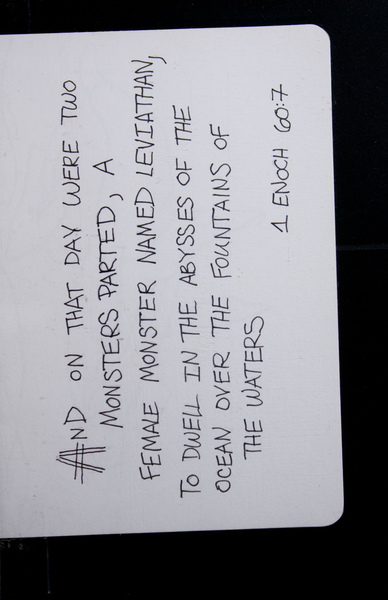 AND ON THAT DAY WERE TWO
MONSTERS PARTED, A
FEMALE MONSTER NAMED LEVIATHAN,
TO DWELL IN THE ABYSSES OF THE
OCEAN OVER THE FOUNTAINS OF
THE WATERS
1 ENOCH 60:7